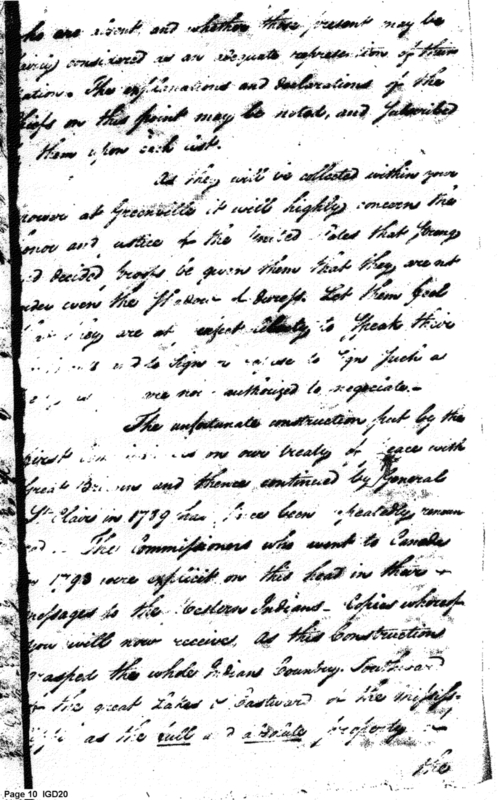 who are absent, and whether those present may be
considered as an adequate representation of their
Nation. The explanations and declarations of the
Chiefs on this point may be noted, and subscribed
by them upon each list.
As they will be collected within your
power at Greenville it will highly concern the
honor and justice of the United States that strong
and decided proofs be given them that they are not
under even the shadow of duress. Let them feel
that they are at perfect liberty to speak their
and to sign or refuse to sign such a
not authorized to negociate.—
The unfortunate construction put by the
first on our treaty of peace with
Great Britain and thence continued by General
St. Clair in 1789 has since been repeatedly renoun
The Commissioners who went to Canada
in 1793 were explicit on this head in their
messages to the Western Indians— Copies whereof
you will now receive. As this Construction
grasped the whole Indian Country Southward
of the great Lakes & Eastward of the Missis-
as the full and absolute property
the
Page 10 IGD20